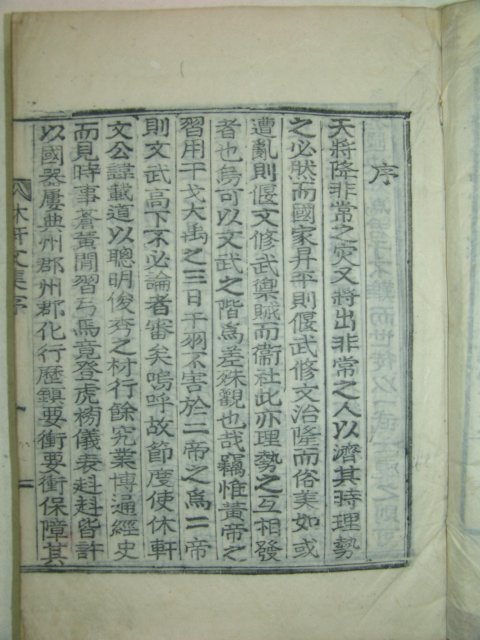 序
天將降非常之灾又將出非常之人以濟其時理勢
之必然而國家昇平則偃武修文治隆而俗美如或
遭亂則偃文修武禦賊而衞社此亦理勢之互相發
者也烏可以文武之階爲差殊觀也哉竊惟黃帝之
習用干戈大禹之三日干羽不害於二帝之爲二帝
則文武高下不必論者審矣嗚呼故節度使休軒
文公諱載道以聰明俊秀之材行餘究業博通經史
而見時事蒼黃閒習弓馬竟登虎榜儀表赳赳皆許
以國器屢典州郡州郡化行歷鎭要衝要衝保障其
休軒文集序